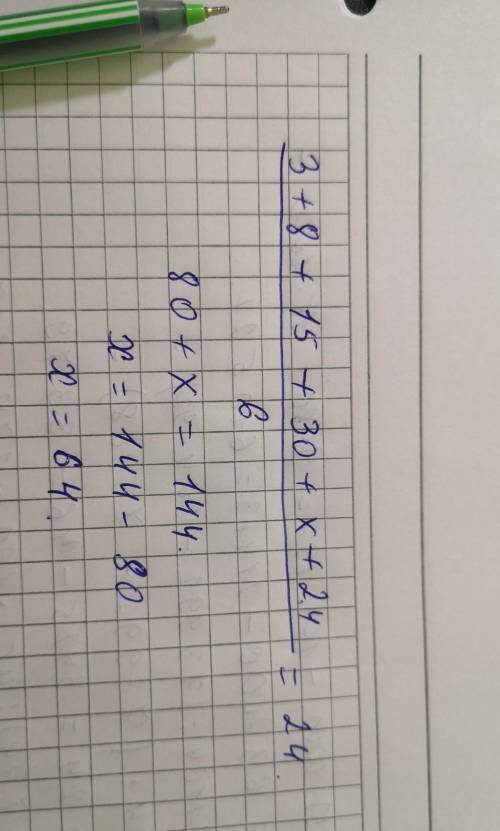 3 + 8 + 15 + 30 + x + 24
6
= 24.
80 + x = 144.
x = 144 - 80
x = 64.